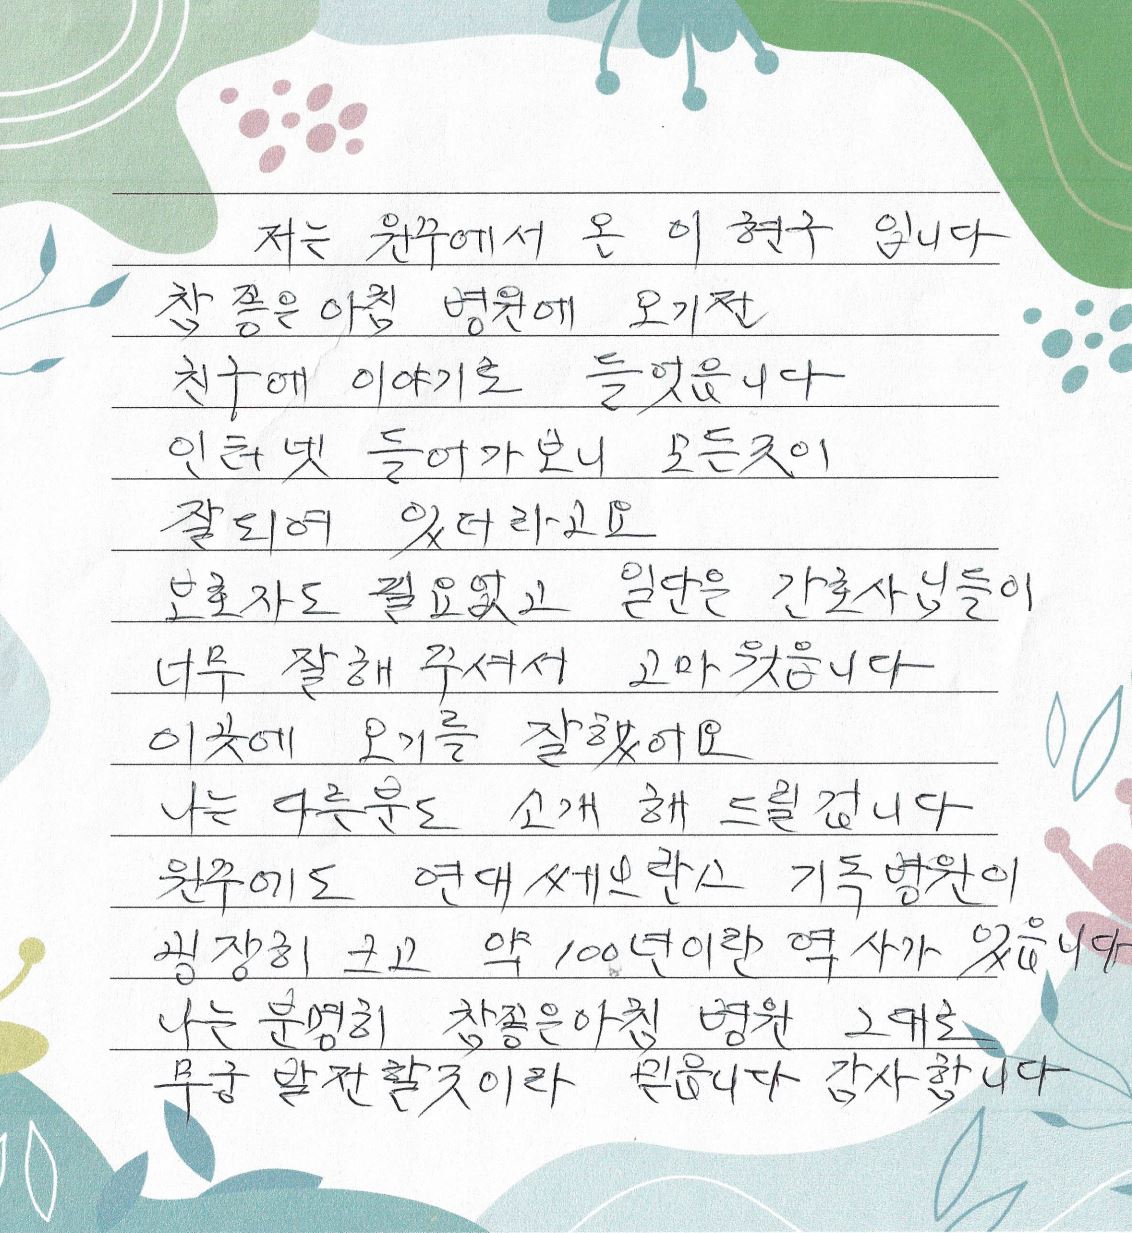 저는 원주에서 온 이현구 입니다
참 좋은 아침 병원에 오기전
친구에 이야기로 들었읍니다
인터넷 들어가보니 모든곳이
잘되여 있더라고요
보호자도 필요없고 일단은 간호사님들이
너무 잘해 주셔서 고마웟읍니다
이곳에 오기를 잘했어요
나는 다른분도 소개 해 드릴겁니다
원주에도 연대 쎄브란스 기독병원이
굉장히 크고 약 100년이란 역사가 있읍니다
나는 분명히 참좋은아침 병원 그대로
무궁 발전할것이라 믿읍니다 감사합니다